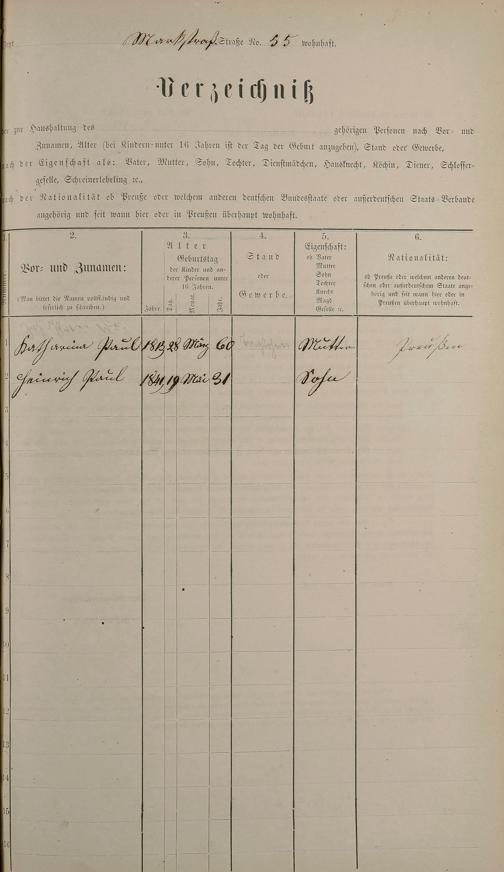 Markstraß. Straße No. 55 wohnhaft.
Verzeichniß
der zur Haushaltung des gehörigen Personen nach Vor- und
Zunamen, Alter (bei Kindern unter 16 Jahren ist der Tag der Geburt anzugeben), Stand oder Gewerbe,
nach der Eigenschaft als: Vater, Mutter, Sohn, Tochter, Dienstmädchen, Hausknecht, Köchin, Diener, Schlosser-
geselle, Schreinerlehrling ec.,
nach der Nationalität ob Preuße oder welchem anderen deutschen Bundesstaate oder außerdeutschen Staats-Verbande
angehörig und seit wann hier oder in Preußen überhaupt wohnhaft.
2.
Vor- und Zunamen:
(Man bittet die Namen vollständig und
leserlich zu schreiben.)
3.
Alter
Geburtstag
der Kinder und an-
derer Personen unter
16 Jahren.
Jahre.
Tag.
Monat.
Jahr.
4.
Stand
oder
Gewerbe.
5.
Eigenschaft:
ob Vater
Mutter
Sohn
Tochter
Knecht
Magd
Geselle ec.
6.
Nationalität:
ob Preuße oder welchem anderen deut-
schen oder außerdeutschen Staate ange-
hörig und seit wann hier oder in
Preußen überhaupt wohnhaft.
1 Katharina Paul 1813 28 März 60 Mutter Preußen
2 Heinrich Paul 1841 19 Mai 31 Sohn
3
4
5
6
7
8
9
10
11
12
13
14
15
16